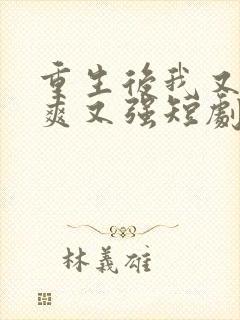 重生後我又
爽又強短劇
林義雄